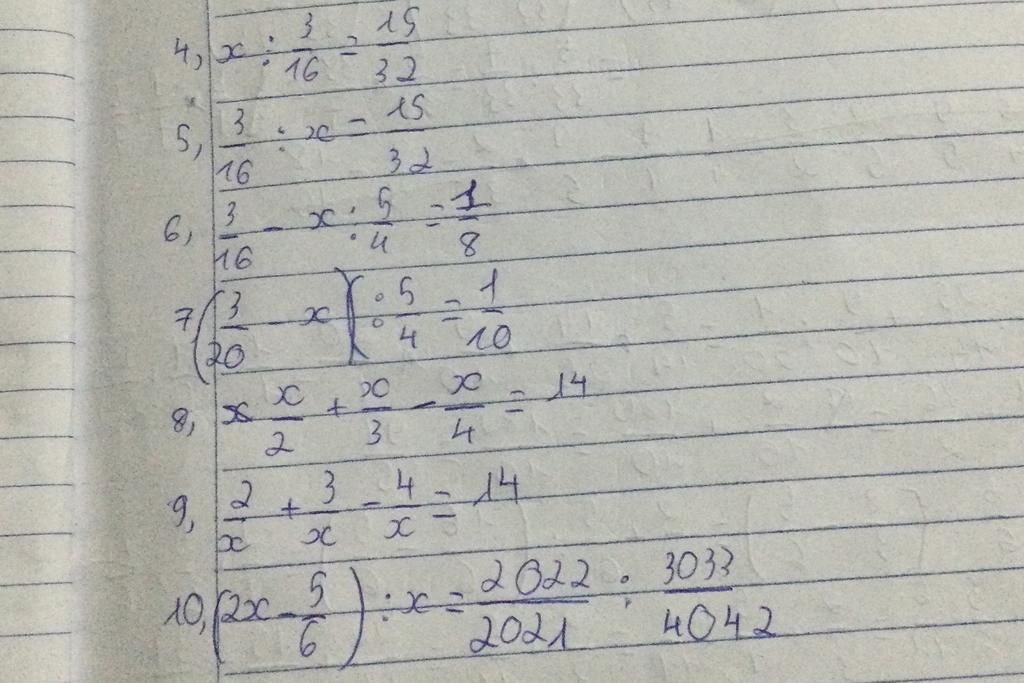 4, x : 3/16 = 15/32
5, 3/16 : x = 15/32
6, 3/16 - x : 5/4 = 1/8
7 (3/20 - x) : 5/4 = 1/10
8, x/2 + x/3 - x/4 = 14
9, 2/x + 3/x - 4/x = 14
10, (2x - 5/6) : x = 2022/2021 : 3033/4042